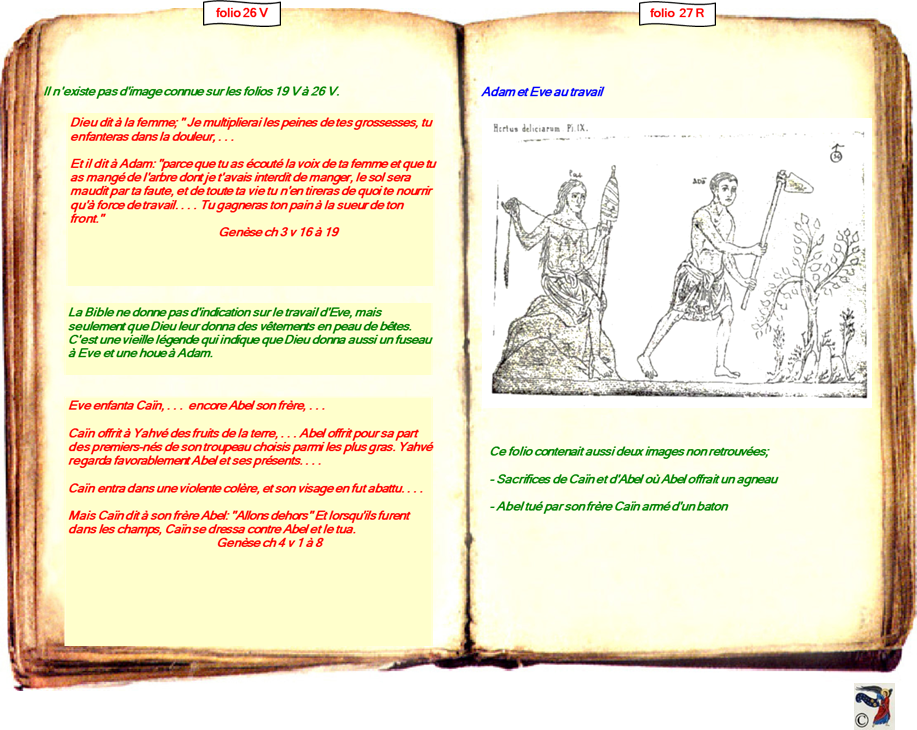 folio 26 V
Il n'existe pas d'image connue sur les folios 19 V à 26 V.
Dieu dit à la femme; " Je multiplierai les peines de tes grossesses, tu
enfanteras dans la douleur, . . .
Et il dit à Adam: "parce que tu as écouté la voix de ta femme et que tu
as mangé de l'arbre dont je t'avais interdit de manger, le sol sera
maudit par ta faute, et de toute ta vie tu n'en tireras de quoi te nourrir
qu'à force de travail. . . . Tu gagneras ton pain à la sueur de ton
front."
Genèse ch 3 v 16 à 19
La Bible ne donne pas d'indication sur le travail d'Eve, mais
seulement que Dieu leur donna des vêtements en peau de bêtes.
C'est une vieille légende qui indique que Dieu donna aussi un fuseau
à Eve et une houe à Adam.
Eve enfanta Caïn, . . . encore Abel son frère, . . .
Caïn offrit à Yahvé des fruits de la terre, . . . Abel offrit pour sa part
des premiers-nés de son troupeau choisis parmi les plus gras. Yahvé
regarda favorablement Abel et ses présents. . . .
Caïn entra dans une violente colère, et son visage en fut abattu. . . .
Mais Caïn dit à son frère Abel: "Allons dehors" Et lorsqu'ils furent
dans les champs, Caïn se dressa contre Abel et le tua.
Genèse ch 4 v 1 à 8
folio 27 R
Adam et Eve au travail
Hortus deliciarum Pl. IX.
Ce folio contenait aussi deux images non retrouvées;
- Sacrifices de Caïn et d'Abel où Abel offrait un agneau
- Abel tué par son frère Caïn armé d'un baton
©